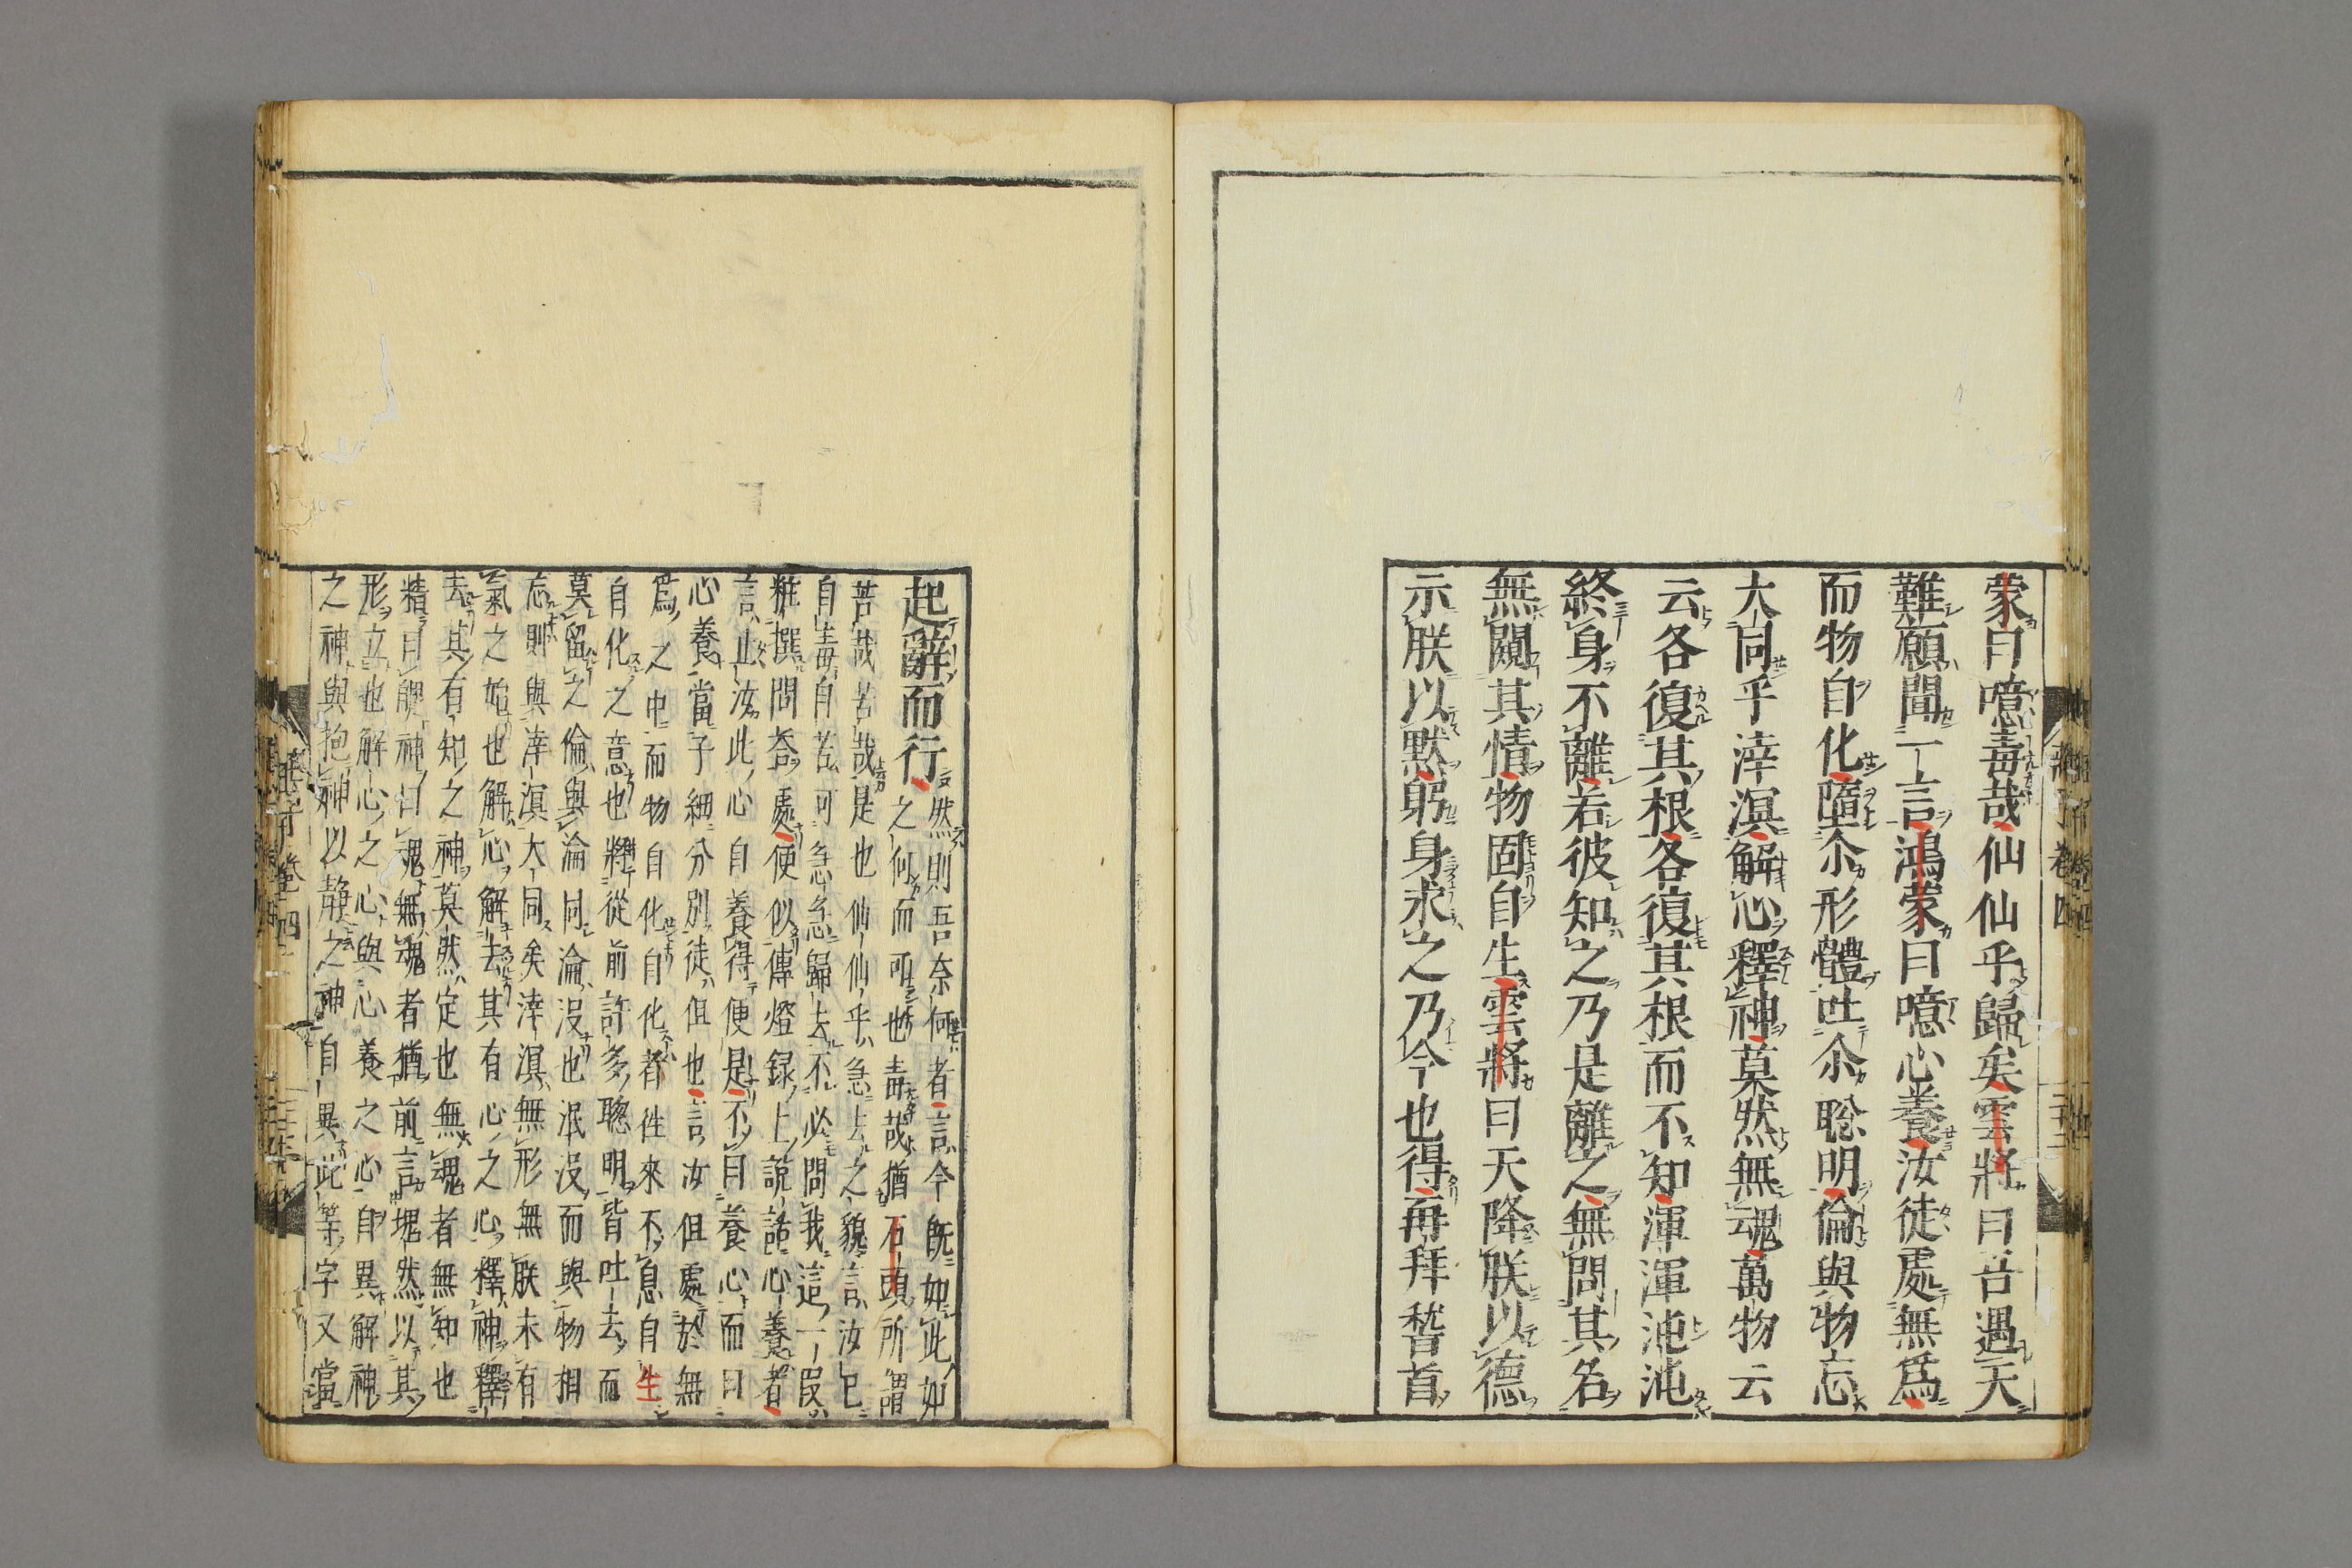 蒙曰噫毒哉仙仙乎歸矣雲將曰吾遇天
難願聞一言鴻蒙曰噫心養汝徒處無爲
而物自化墮尒形體吐尒聡明倫與物忘
大同乎涬溟解心釋神莫然無魂萬物云
云各復其根各復其根而不知渾渾沌沌
終身不離若彼知之乃是離之無問其名
無闚其情物固自生雲將曰天降朕以德
示朕以黙躬身求之乃今也得再拜稽首
起辭而行
然則吾奈何者言今既如此如
之何而可也毒哉猶石頭所謂
苦哉苦哉是也仙仙乎急去之貌言汝已
自毒自苦可急急歸去不必問我這一段
粧撰問荅處便似傳燈録上說話心養者
言止汝此心自養得便是不曰養心而曰
心養當子細分別徒但也言汝但處於無
爲之中而物自化自化者徃來不息自生
自化之意也將從前許多聰明皆吐去而
莫留之倫與淪同淪没也泯没而與物相
忘則與涬溟大同矣涬溟無形無朕未有
氣之始也解心解去其有心之心釋神釋
去其有知之神莫然定也無魂者無知也
精曰魄神曰魂無魂者猶前言塊然以其
形立也解心之心與心養之心自異解神
之神與抱神以静之神自異此等字又當
莊子卷四